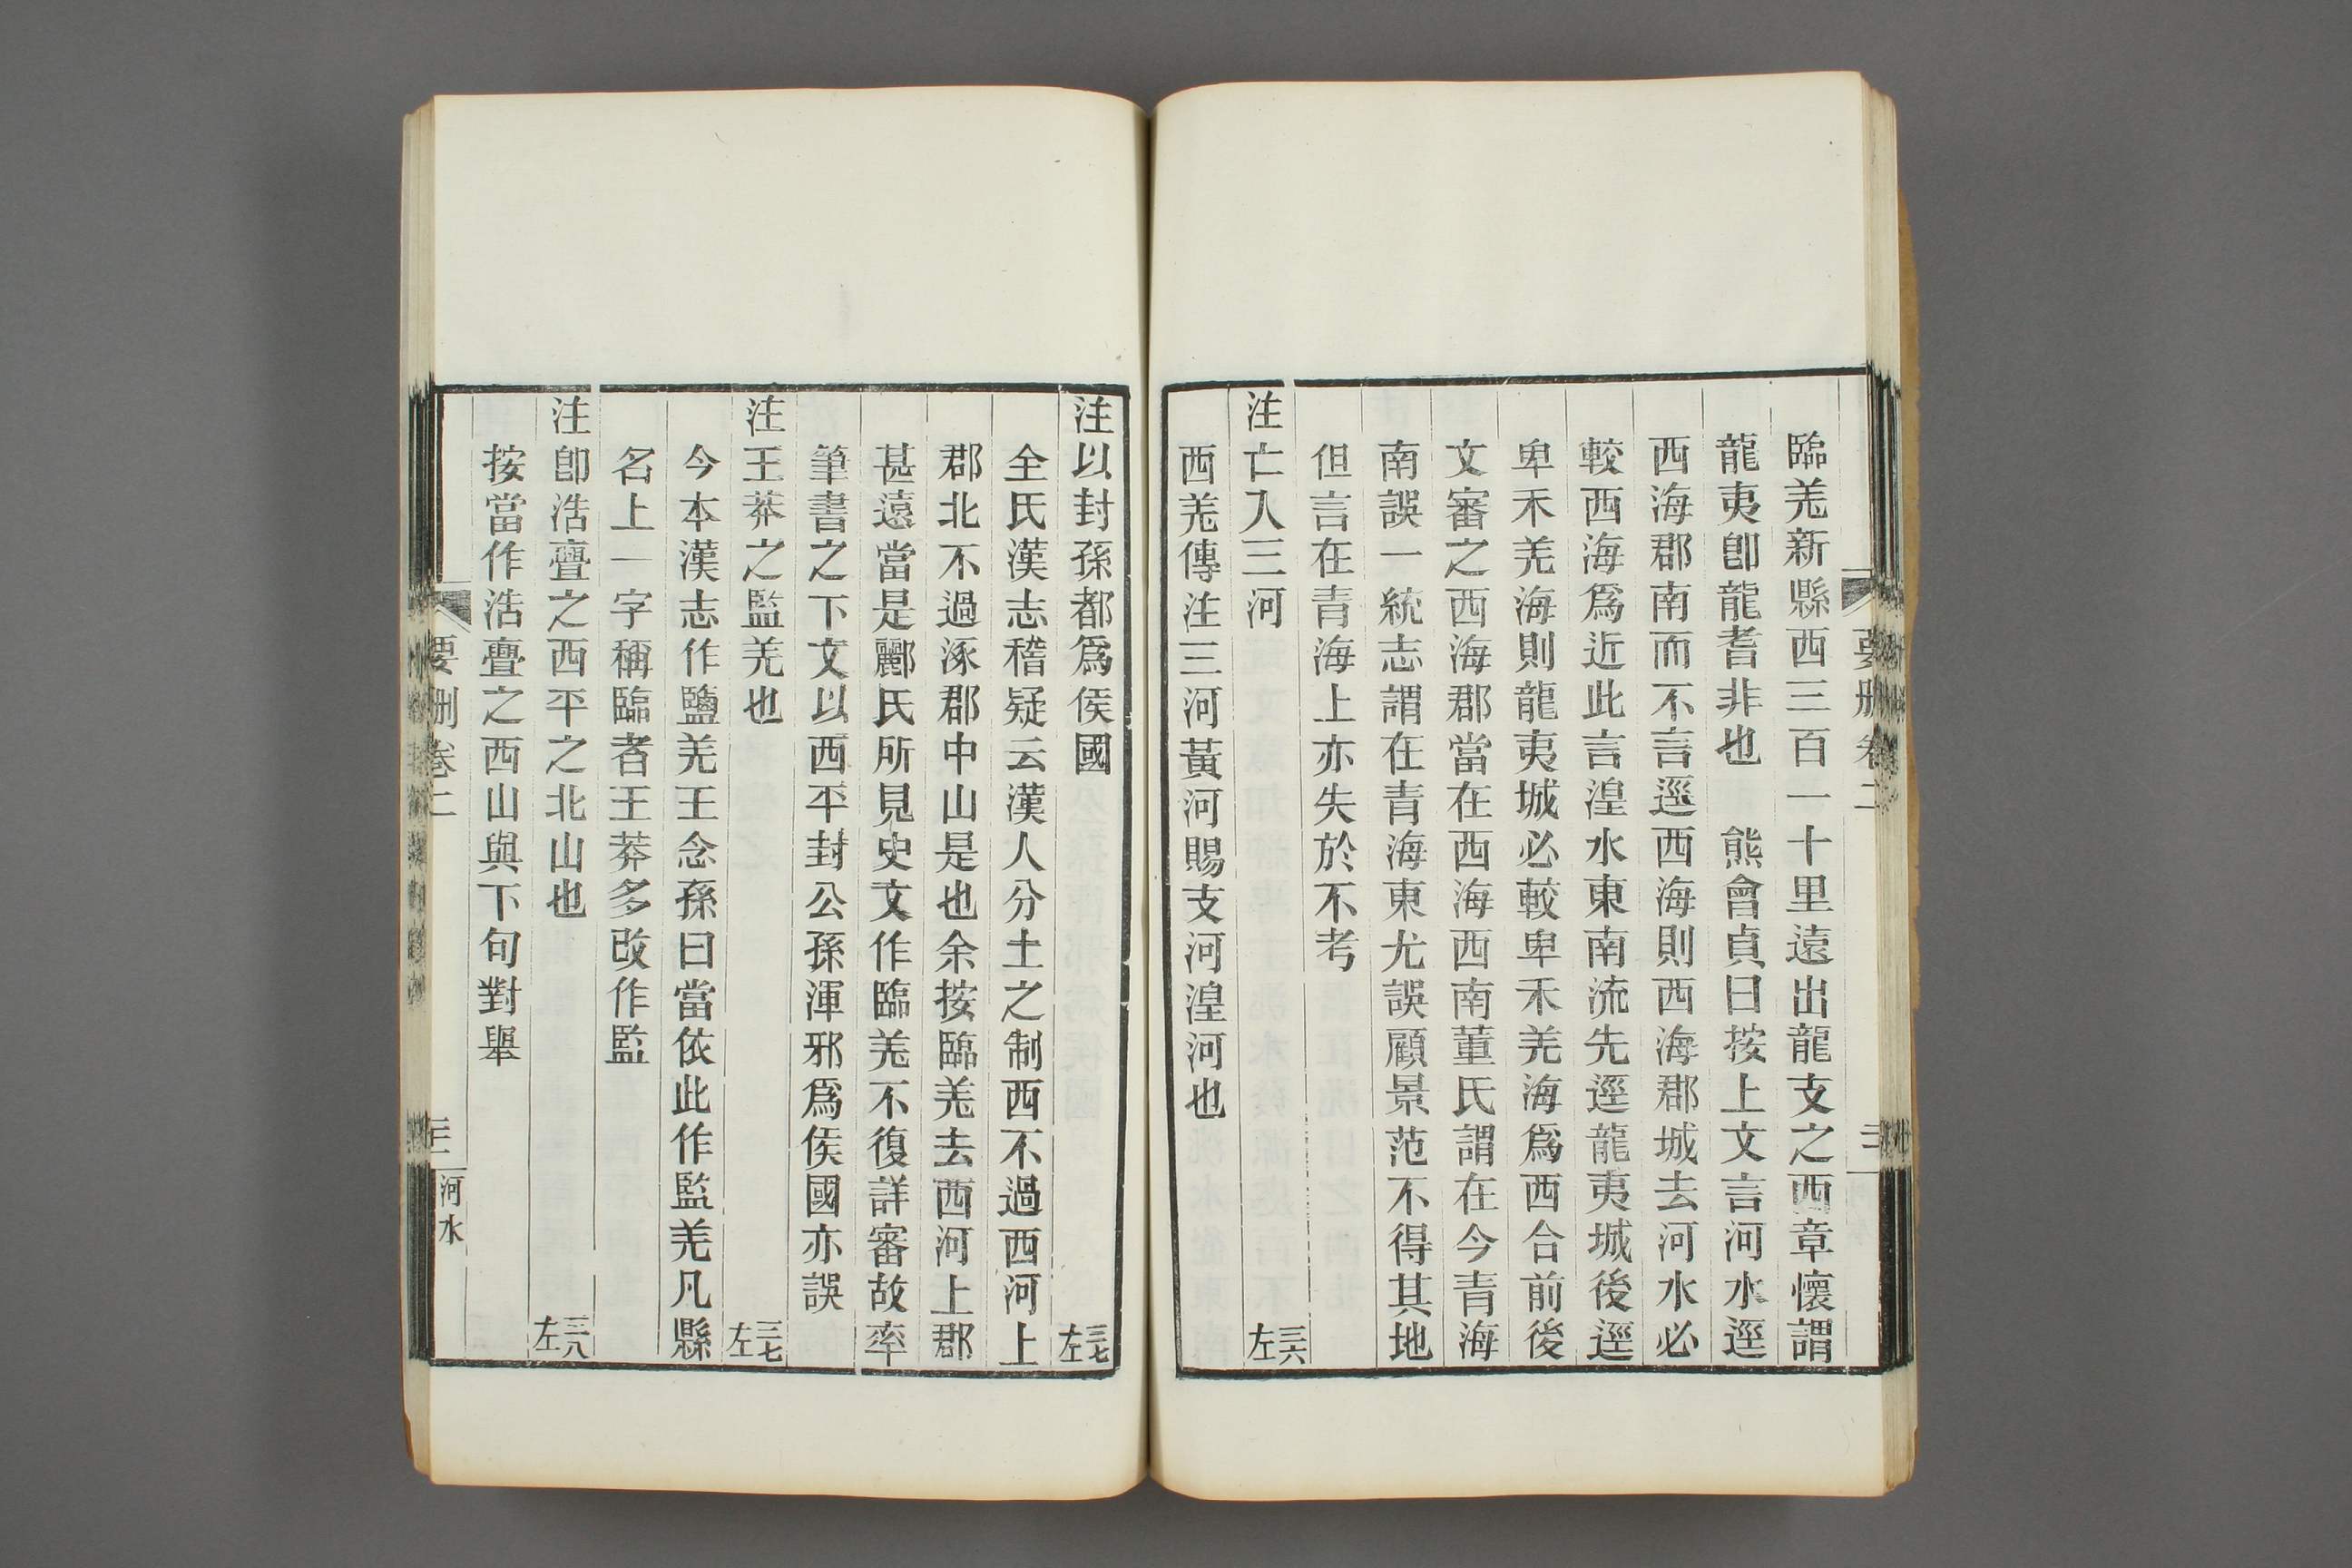 要刪卷二
臨羌新縣西三百一十里遠出龍支之西章懷謂
龍夷卽龍耆非也　熊會貞曰按上文言河水逕
西海郡南而不言逕西海則西海郡城去河水必
較西海爲近此言湟水東南流先逕龍夷城後逕
卑禾羌海則龍夷城必較卑禾羌海爲西合前後
文審之西海郡當在西海西南董氏謂在今青海
南誤一統志謂在青海東尤誤顧景范不得其地
但言在青海上亦失於不考
注亡入三河　三六左
西羌傳注三河黃河賜支河湟河也
注以封孫都爲侯國　三七左
全氏漢志稽疑云漢人分土之制西不過西河上
郡北不過涿郡中山是也余按臨羌去西河上郡
甚遠當是酈氏所見史文作臨羌不復詳審故率
筆書之下文以西平封公孫渾邪爲侯國亦誤
注王莽之監羌也　三七左
今本漢志作鹽羌王念孫曰當依此作監羌凡縣
名上一字稱臨者王莽多改作監
注卽浩亹之西平之北山也　三八左
按當作浩亹之西山與下句對舉
要刪卷二　河水